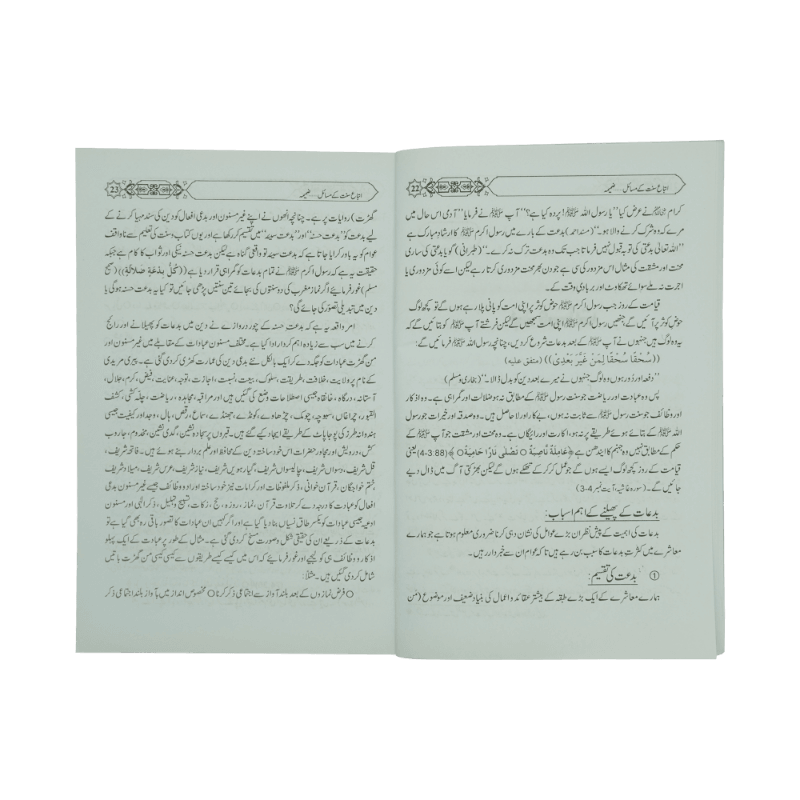 22
اتباع سنت کے مسائل ... ضمیمہ
کرام ؓ نے عرض کیا ”یا رسول اللہ ﷺ! پردہ کیا ہے؟“ آپ ﷺ نے فرمایا ”آدمی اس حال میں
مرے کہ وہ شرک کرنے والا ہو۔“ (مسند احمد) بدعت کے بارے میں رسول اکرم ﷺ کا ارشاد مبارک ہے
”اللہ تعالیٰ بدعتی کی توبہ قبول نہیں فرماتا جب تک وہ بدعت ترک نہ کرے۔“ (طبرانی) گویا بدعتی کی ساری
محنت اور مشقت کی مثال اس مزدور کی سی ہے جو دن بھر محنت مزدوری کرتا رہے لیکن اسے کوئی مزدوری یا
اجرت نہ ملے سوائے تھکاوٹ اور بربادی وقت کے۔
قیامت کے روز جب رسول اکرم ﷺ حوض کوثر پر اپنی امت کو پانی پلا رہے ہوں گے تو کچھ لوگ
حوض کوثر پر آئیں گے جنہیں رسول اکرم ﷺ اپنی امت سمجھیں گے لیکن فرشتے آپ ﷺ کو بتائیں گے کہ
یہ وہ لوگ ہیں جنہوں نے آپ ﷺ کے بعد بدعات شروع کر دیں، چنانچہ رسول اللہ ﷺ فرمائیں گے:
((سُحْقًا سُحْقًا لِمَنْ غَيَّرَ بَعْدِي)) (متفق علیہ)
”دفعہ اور دُور ہوں وہ لوگ جنہوں نے میرے بعد دین کو بدل ڈالا۔“ (بخاری و مسلم)
پس وہ عبادت اور ریاضت جو سنت رسول ﷺ کے مطابق نہ ہو ضلالت اور گمراہی ہے۔ وہ اذکار
اور وظائف جو سنت رسول ﷺ سے ثابت نہ ہوں، بے کار اور لا حاصل ہیں۔ وہ صدقہ اور خیرات جو رسول
اللہ ﷺ کے بتائے ہوئے طریقے پر نہ ہو، اکارت اور رائیگاں ہے۔ وہ محنت اور مشقت جو آپ ﷺ کے
حکم کے مطابق نہیں وہ جہنم کا ایندھن ہے ﴿عَامِلَةٌ نَّاصِبَةٌ ○ تَصْلٰى نَارًا حَامِيَةً ○ ﴾ (88:3-4) یعنی
قیامت کے روز کچھ لوگ ایسے ہوں گے جو عمل کر کر کے تھکے ہوں گے لیکن بھڑکتی آگ میں ڈال دیئے
جائیں گے۔ (سورہ غاشیہ، آیت نمبر 4-3)
بدعات کے پھیلنے کے اہم اسباب:
بدعات کی اہمیت کے پیش نظر ان بڑے عوامل کی نشان دہی کرنا ضروری معلوم ہوتا ہے جو ہمارے
معاشرے میں کثرت بدعات کا سبب بن رہے ہیں تاکہ عوام ان سے خبردار رہیں۔
① بدعت کی تقسیم:
ہمارے معاشرے کے ایک بڑے طبقہ کے بیشتر عقائد و اعمال کی بنیاد ضعیف اور موضوع (من
23
اتباع سنت کے مسائل ... ضمیمہ
گھڑت) روایات پر ہے۔ چنانچہ انہوں نے اپنے غیر مسنون اور بدعی افعال کو دین کی سند مہیا کرنے کے
لیے بدعت کو ”بدعت حسنہ“ اور ”بدعت سیئہ“ میں تقسیم کر رکھا ہے اور یوں کتاب و سنت کی تعلیم سے ناواقف
عوام کو یہ باور کرایا جاتا ہے کہ بدعت سیئہ تو واقعی گناہ ہے لیکن بدعت حسنہ نیکی اور ثواب کا کام ہے جبکہ
حقیقت یہ ہے کہ رسول اکرم ﷺ نے تمام بدعات کو گمراہی قرار دیا ہے ((كُلُّ بِدْعَةٍ ضَلَالَةٌ)) (صحیح
مسلم) غور فرمائیے اگر نماز مغرب کی دو سنتوں کی بجائے تین سنتیں پڑھی جائیں تو کیا یہ بدعت حسنہ ہوگی یا
دین میں تبدیلی تصور کی جائے گی؟
امر واقعہ یہ ہے کہ بدعت حسنہ کے چور دروازے نے دین میں بدعات کو پھیلانے اور رائج
کرنے میں سب سے زیادہ اہم کردار ادا کیا ہے۔ مختلف مسنون عبادات کے مقابلے میں غیر مسنون اور
من گھڑت عبادات کو جگہ دے کر ایک بالکل نئے بدعی دین کی عمارت کھڑی کر دی گئی ہے۔ پیری مریدی
کے نام پر ولایت، خلافت، طریقت، سلوک، بیعت، نسبت، اجازت، توجہ، عنایت، فیض، کرم، جلال،
آستانہ، درگاہ، خانقاہ جیسی اصطلاحات وضع کی گئیں ہیں اور مراقبہ، مجاہدہ، ریاضت، چلہ کشی، کشف
القبور، چراغاں، سبوچہ، چومک، چڑھاوے، کونڈے، جھنڈے، سماع، رقص، حال، وجد اور کیفیت جیسی
ہندوانہ طرز کی پوجا پاٹ کے طریقے ایجاد کیے گئے ہیں۔ قبروں پر سجادہ نشین، گدی نشین، مخدوم، جاروب
کش، درویش اور مجاور حضرات اس خود ساختہ دین کے محافظ اور علم بردار بنے ہوئے ہیں۔ فاتحہ شریف،
قل شریف، دسواں شریف، چالیسواں شریف، گیارہویں شریف، نیاز شریف، عرس شریف، میلاد شریف،
ختم خواجگان، قرآن خوانی، ذکر ملفوظات اور کرامات نیز خود ساختہ اوراد و وظائف جیسے غیر مسنون بدعی
افعال کو عبادت کا درجہ دے کر تلاوت قرآن، نماز، روزہ، حج، زکاۃ، تسبیح و تہلیل، ذکر الٰہی اور مسنون
ادعیہ جیسی عبادات کو یکسر طاق نسیاں بنا دیا گیا ہے اور اگر کہیں ان عبادات کا تصور باقی رہ بھی گیا ہے تو
بدعات کے ذریعے ان کی حقیقی شکل و صورت مسخ کر دی گئی ہے۔ مثال کے طور پر عبادات کے ایک پہلو
اذکار و وظائف ہی کو لیجیے اور غور فرمائیے کہ اس میں کیسے کیسے طریقوں سے کیسی کیسی من گھڑت باتیں
شامل کر دی گئیں ہیں۔ مثلاً:
○ فرض نمازوں کے بعد بلند آواز سے اجتماعی ذکر کرنا ○ مخصوص انداز میں بآواز بلند اجتماعی ذکر